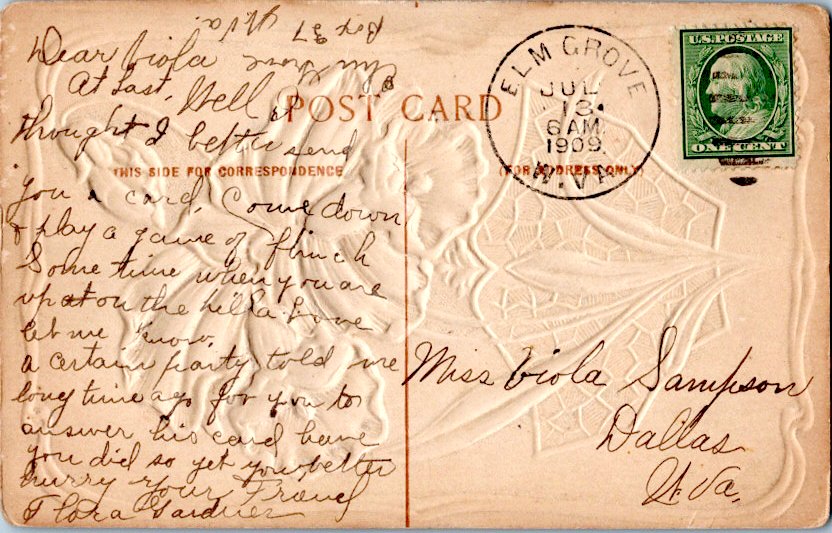 Dear Viola
At last, Well I
thought I better send
you a card. Come down
& play a game of flinch
Some time when you are
up at on the hill
let me know.
a certain party told me
long time ago for you to
answer his card have
you did so yet you better
hurry Your Friend
Flora Gardner
Elm Grove
Box 37
W. Va.
POST CARD
THIS SIDE FOR CORRESPONDENCE
(FOR ADDRESS ONLY)
ELM GROVE
JUL
13
6 AM
1909
W. VA.
U.S. POSTAGE
ONE CENT
Miss Viola Sampson
Dallas
W. Va.